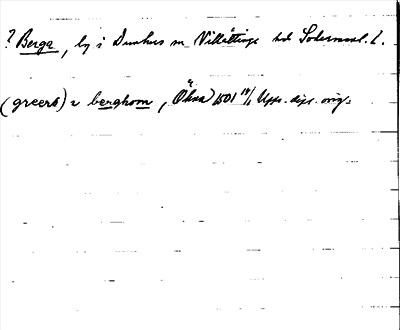 ? Berga, by i Dunkers sn Villåttinge hd Södermanl. l.
(greers) i berghom, Åkna 1501 18/1 Upps. dipl. orig.